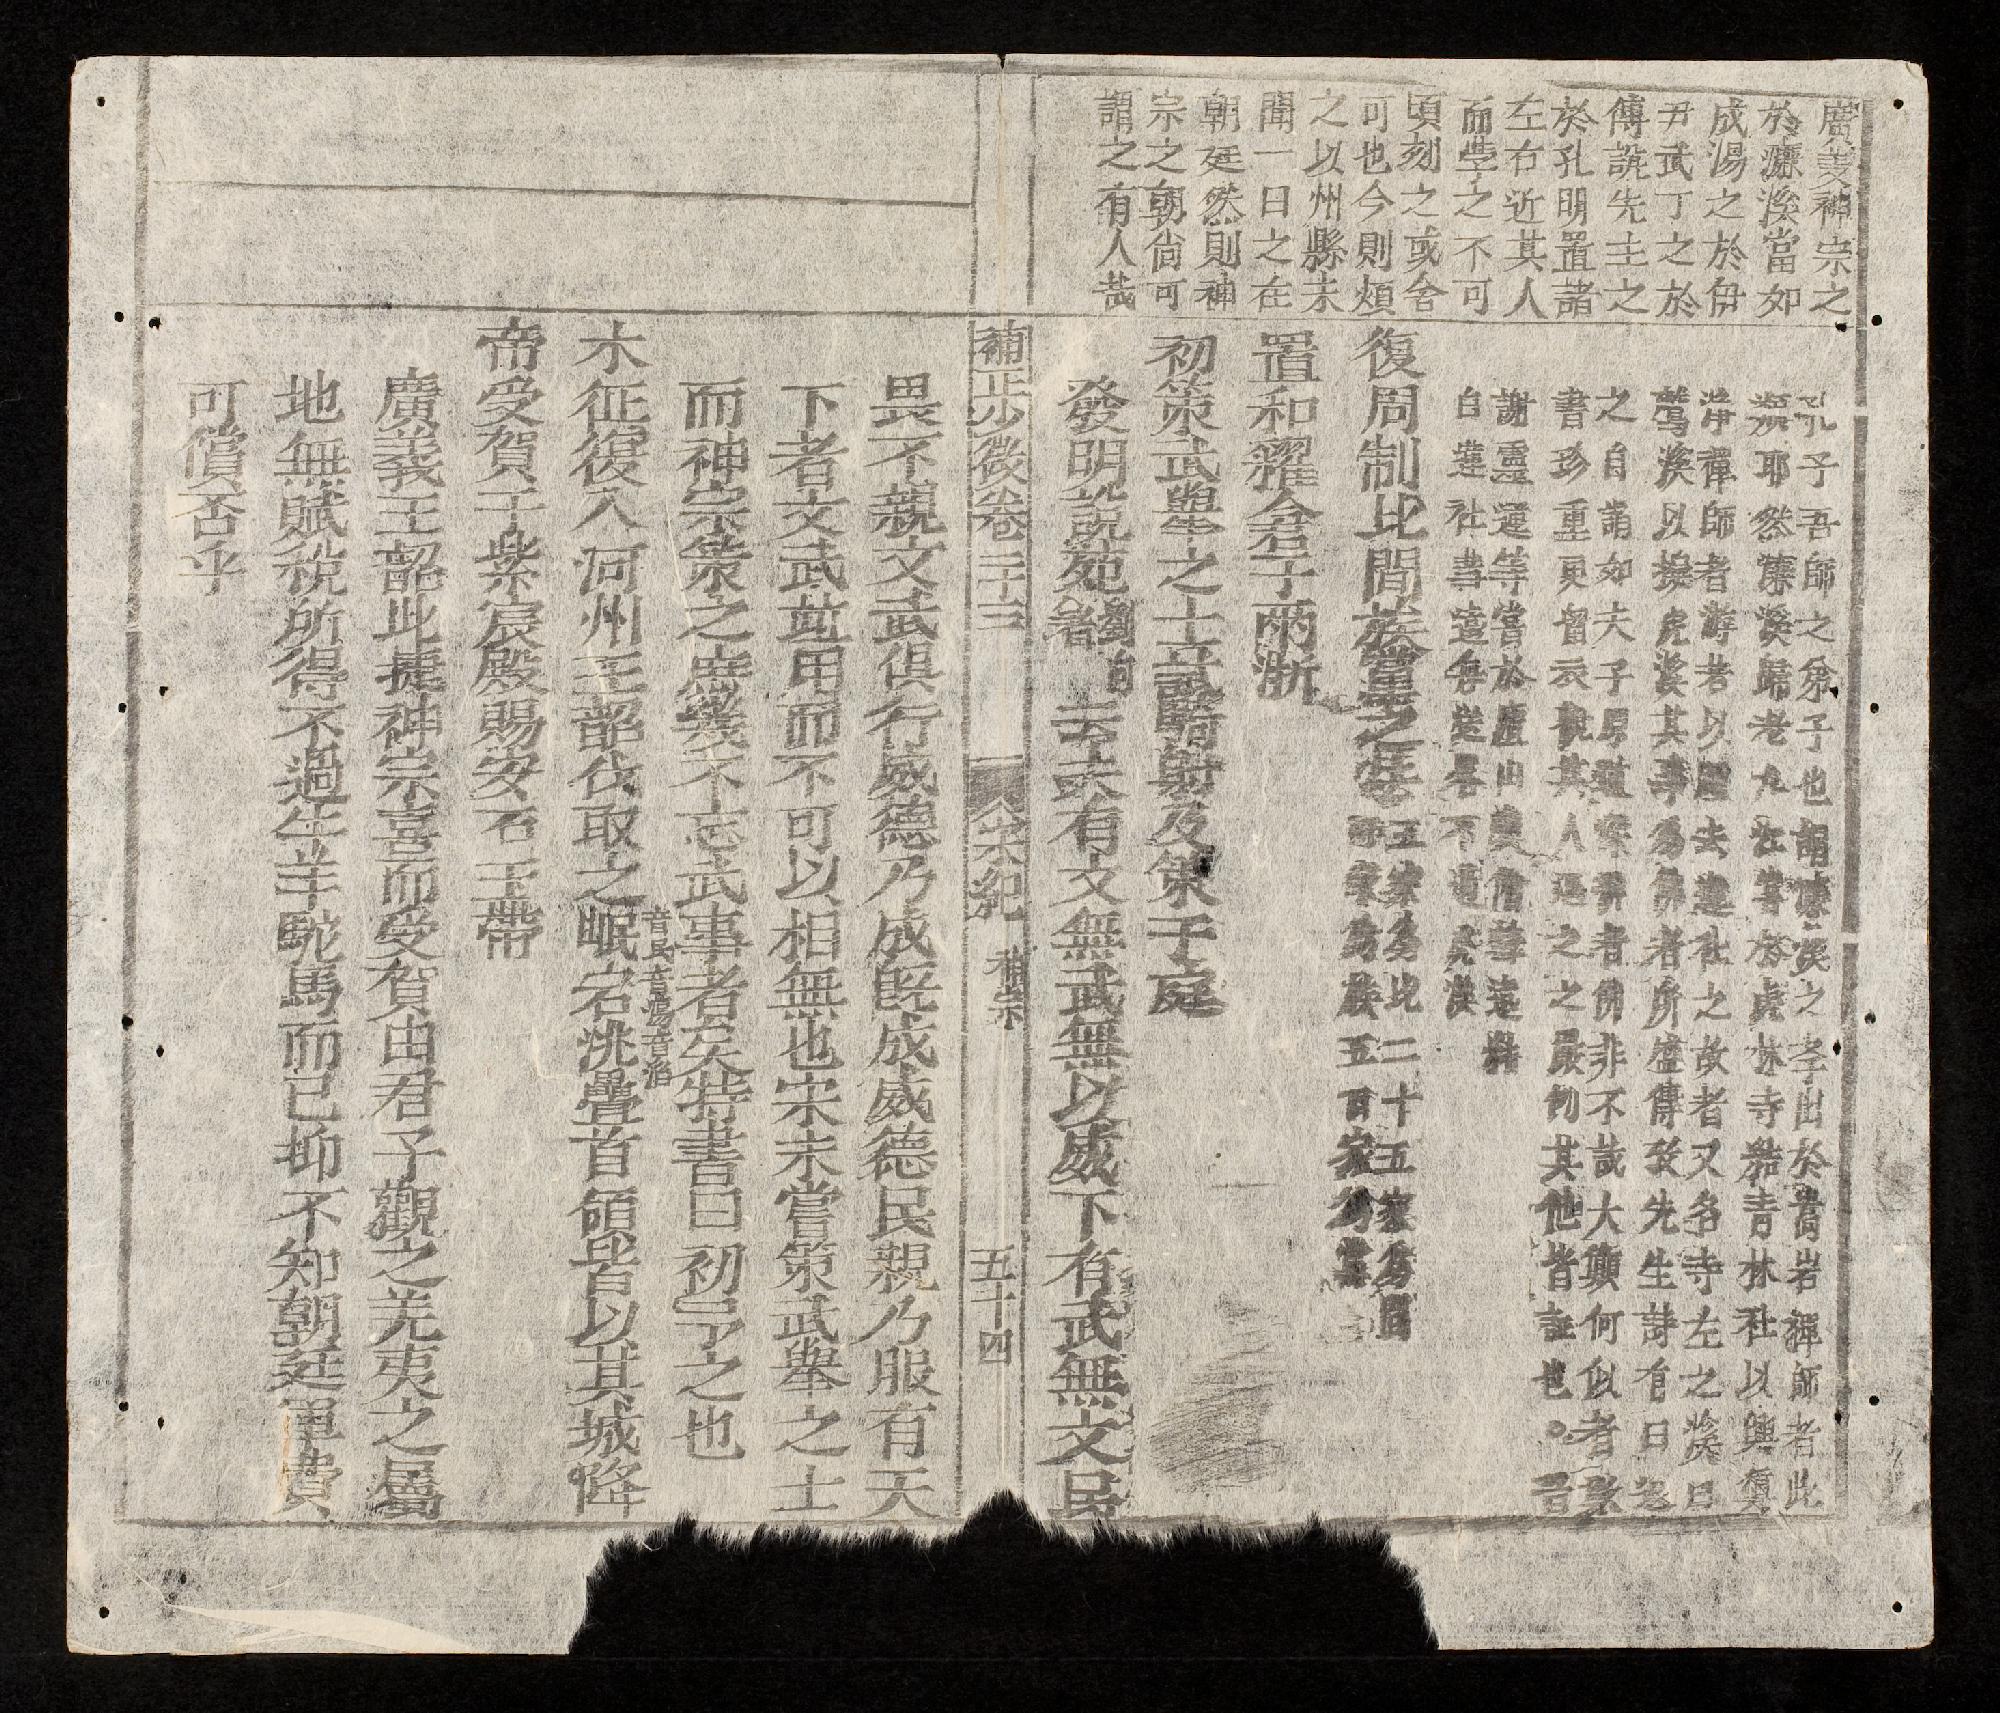 廣義神宗之
於濂溪當如
成湯之於伊
尹武丁之於
傅說先主之
於孔明置諸
左右近其人
而學之不可
頃刻之或舍
可也今則煩
之以州縣未
聞一日之在
朝廷然則神
宗之朝尚可
謂之有人哉
孔子吾師之弟子也謂濂溪之李出於耆岩禪師者此
耶然濂溪歸老九江甞於虎林寺結青林社以與眞
淨禪師者游者以繼去蓮社之故者又名寺左之溪曰
鸞溪以擬虎溪其事為佛者所盛傳致先生詩有曰
之自誦如夫子原者佛非不哉大顚何似者
書珍重更留衣觀其人遇之之嚴則其他皆誣也。晋
謝靈運等嘗於廬山與僧慧遠緒
白蓮社書遠每送客不過虎溪
復周制比閭族黨之法五家為比二十五家為閭百家為族五百家為黨
置和糴倉于兩浙
初策武舉之士試騎射及策于庭
發明說苑劉向著云夫有文無武無以威下有武無文民
補正少微卷二十三 宋紀 神宗 五十四
畏不親文武俱行威德乃成旣成威德民親乃服有天
下者文武竝用而不可以相無也宋未嘗策武舉之士
而神宗策之庶幾不忘武事者矣特書曰初予之也
木征復入河州王韶伐取之岷宕洮疊首領皆以其城降
音民音湯音滔
帝受賀于紫宸殿賜安石玉帶
廣義王韶此捷神宗喜而受賀由君子觀之羌夷之屬
地無賦稅所得不過牛羊駝馬而已抑不知朝廷軍費
可償否乎